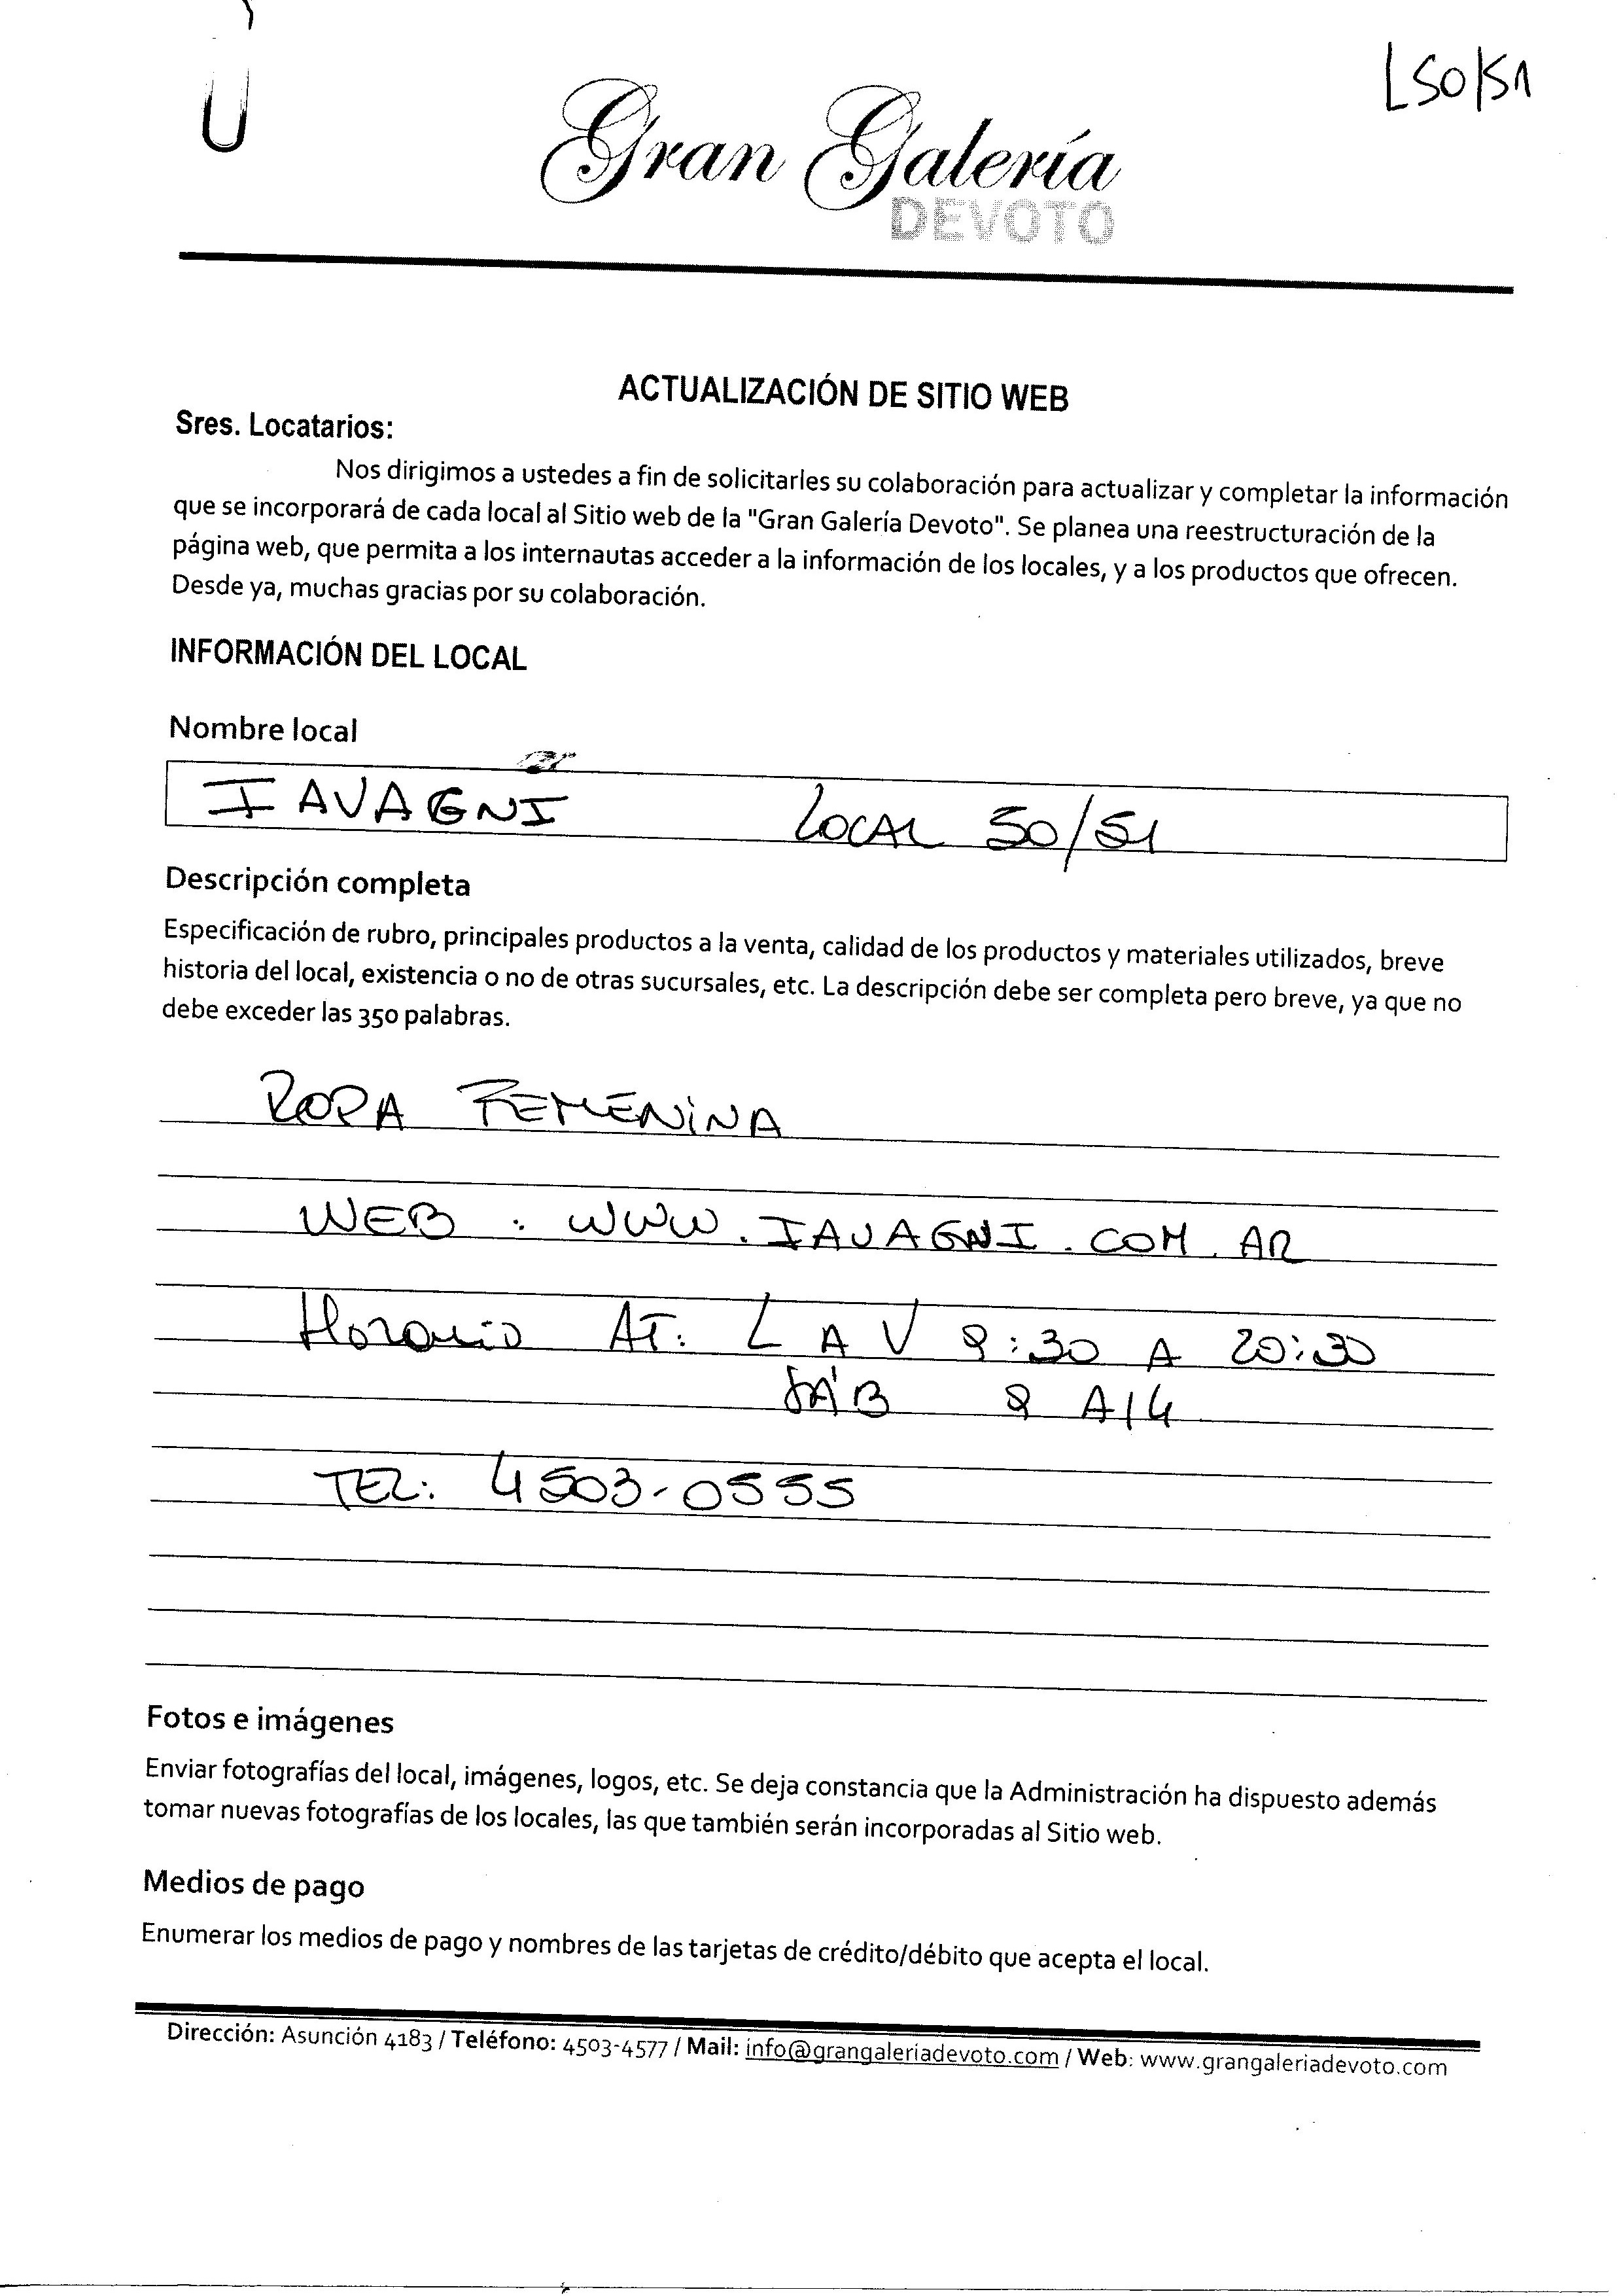 L50/51
Gran Galería
DEVOTO
ACTUALIZACIÓN DE SITIO WEB
Sres. Locatarios:
Nos dirigimos a ustedes a fin de solicitarles su colaboración para actualizar y completar la información
que se incorporará de cada local al Sitio web de la "Gran Galería Devoto". Se planea una reestructuración de la
página web, que permita a los internautas acceder a la información de los locales, y a los productos que ofrecen.
Desde ya, muchas gracias por su colaboración.
INFORMACIÓN DEL LOCAL
Nombre local
IAVAGNI LOCAL 50/51
Descripción completa
Especificación de rubro, principales productos a la venta, calidad de los productos y materiales utilizados, breve
historia del local, existencia o no de otras sucursales, etc. La descripción debe ser completa pero breve, ya que no
debe exceder las 350 palabras.
ROPA FEMENINA
WEB : WWW.IAVAGNI.COM.AR
Horario AT: L A V 9:30 A 20:30
SÁB 9 A 14
TEL: 4503-0555
Fotos e imágenes
Enviar fotografías del local, imágenes, logos, etc. Se deja constancia que la Administración ha dispuesto además
tomar nuevas fotografías de los locales, las que también serán incorporadas al Sitio web.
Medios de pago
Enumerar los medios de pago y nombres de las tarjetas de crédito/débito que acepta el local.
Dirección: Asunción 4183 / Teléfono: 4503-4577 / Mail: info@grangaleriadevoto.com / Web: www.grangaleriadevoto.com